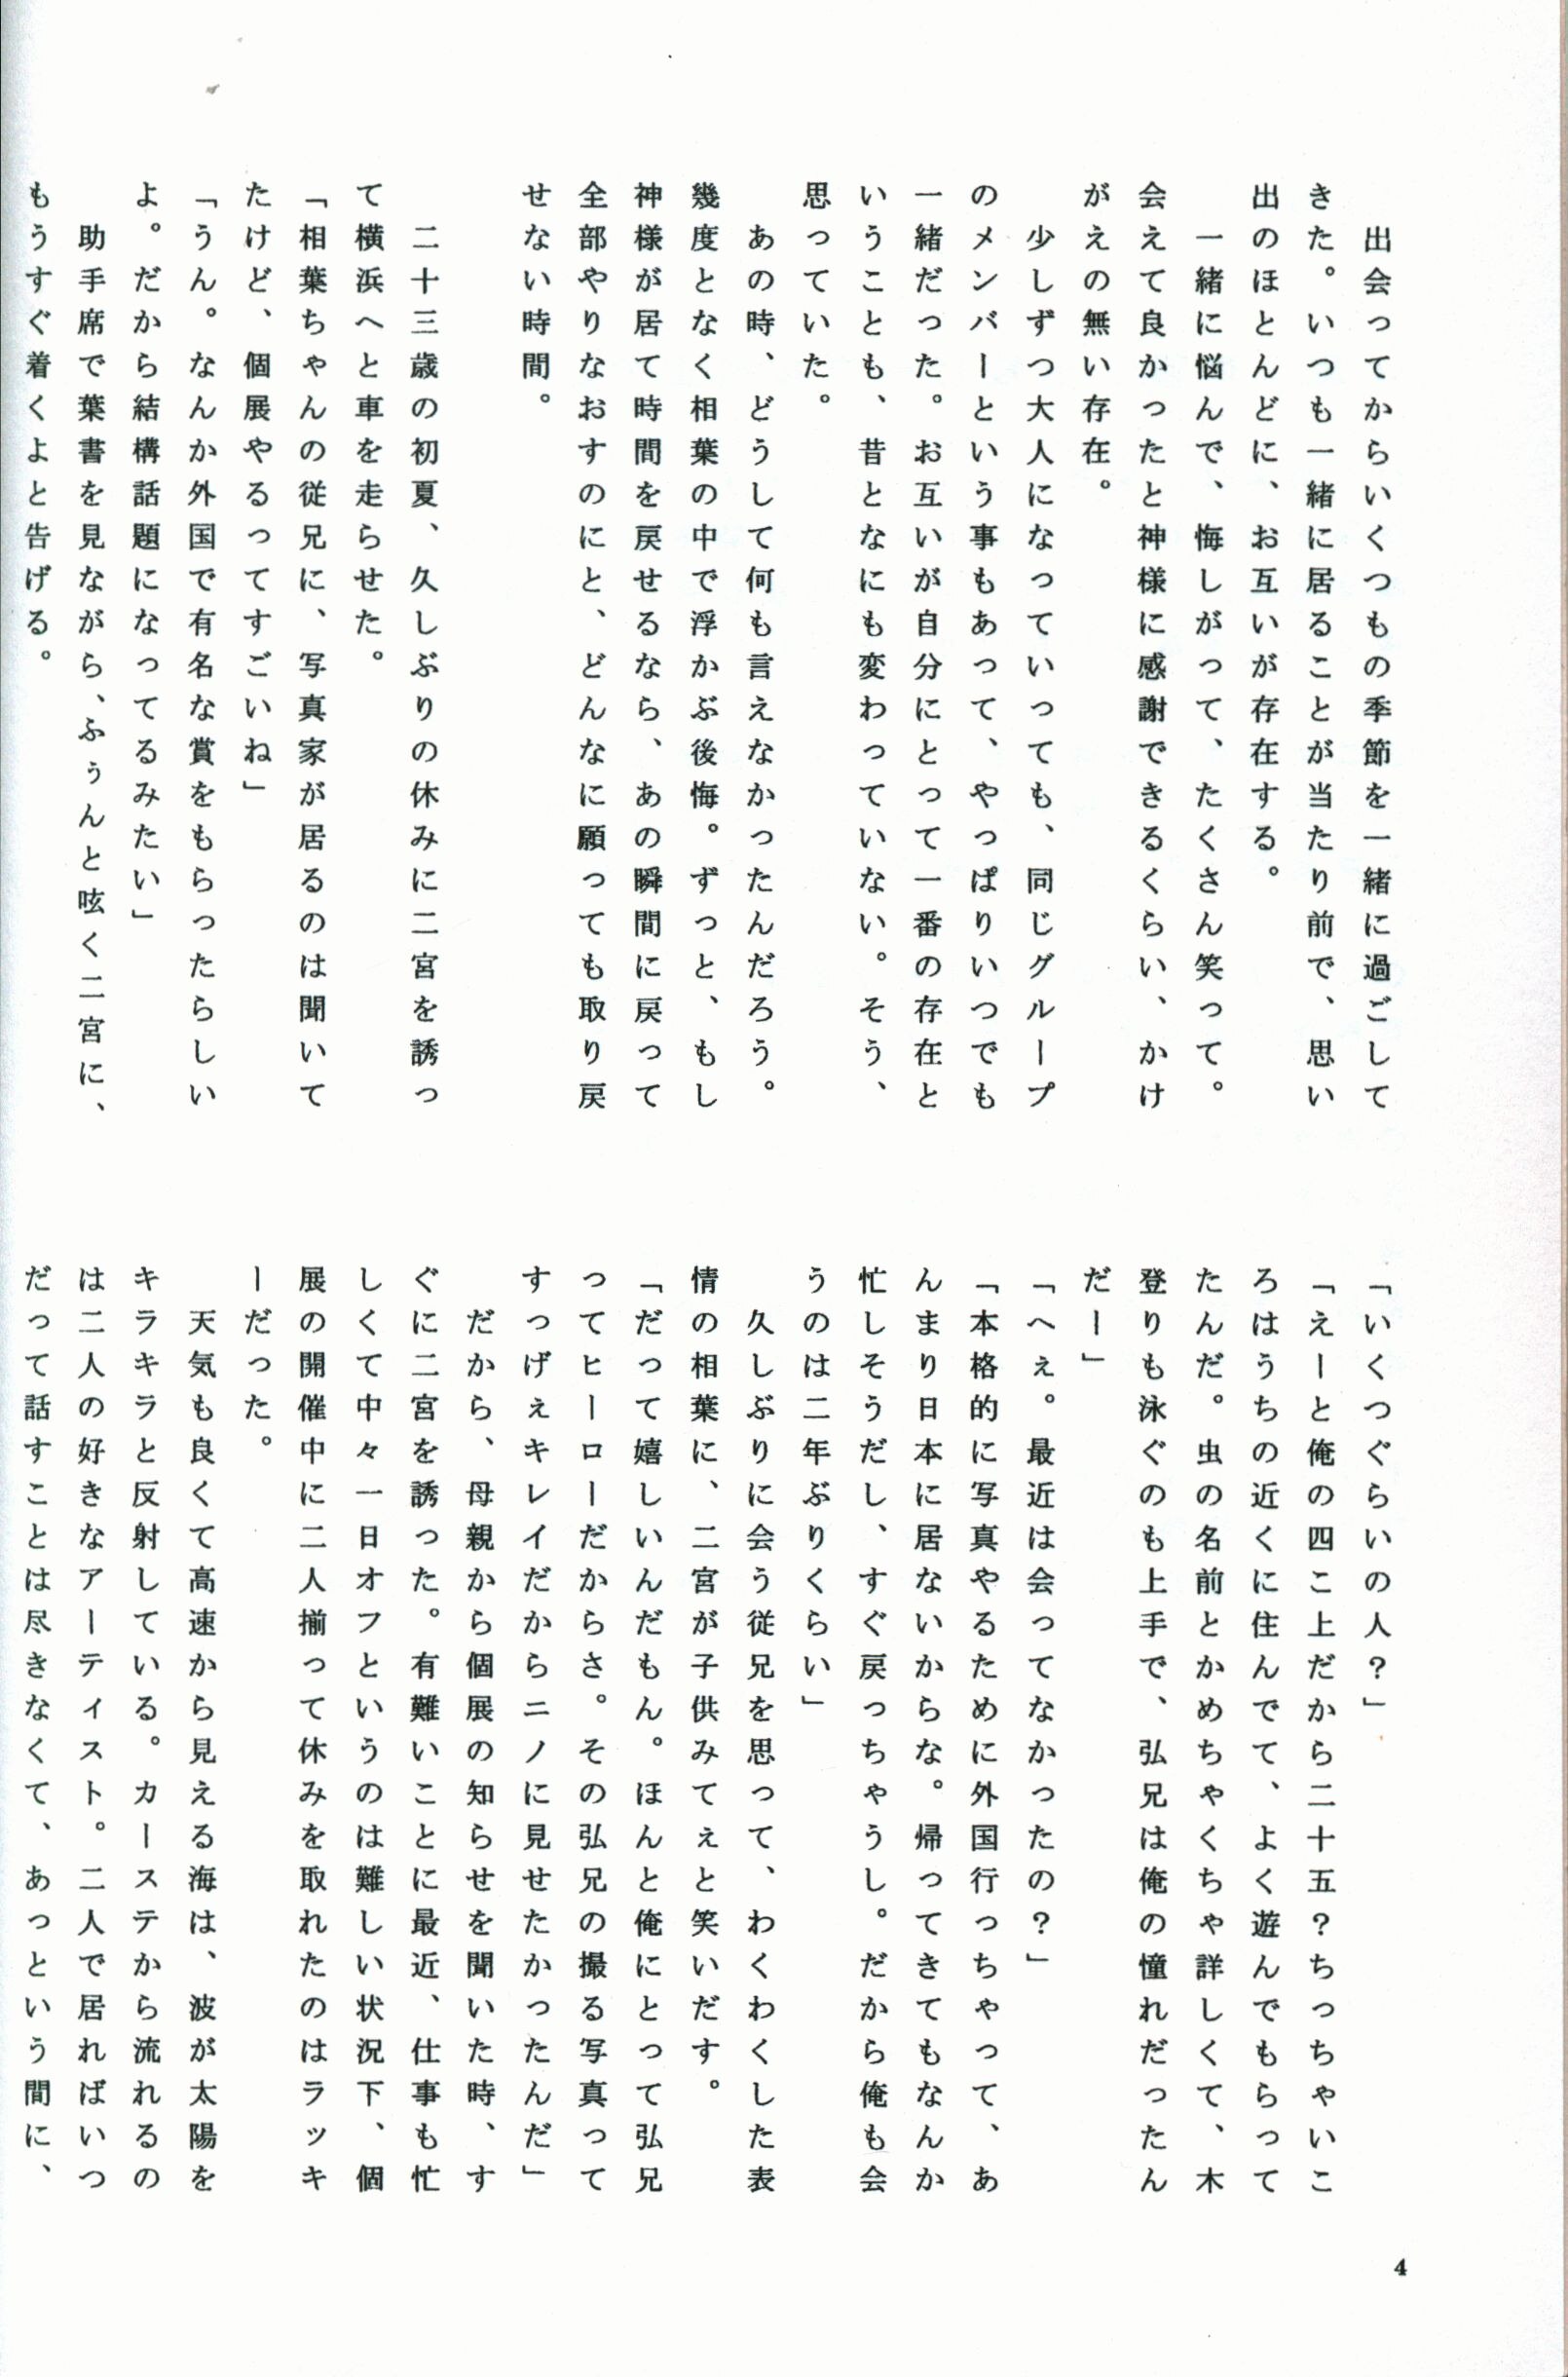 出会ってからいくつもの季節を一緒に過ごして
きた。いつも一緒に居ることが当たり前で、思い
出のほとんどに、お互いが存在する。
　一緒に悩んで、悔しがって、たくさん笑って。
会えて良かったと神様に感謝できるくらい、かけ
がえの無い存在。
　少しずつ大人になっていっても、同じグループ
のメンバーという事もあって、やっぱりいつでも
一緒だった。お互いが自分にとって一番の存在と
いうことも、昔となにも変わっていない。そう、
思っていた。
　あの時、どうして何も言えなかったんだろう。
幾度となく相葉の中で浮かぶ後悔。ずっと、もし
神様が居て時間を戻せるなら、あの瞬間に戻って
全部やりなおすのにと、どんなに願っても取り戻
せない時間。
　二十三歳の初夏、久しぶりの休みに二宮を誘っ
て横浜へと車を走らせた。
「相葉ちゃんの従兄に、写真家が居るのは聞いて
たけど、個展やるってすごいね」
「うん。なんか外国で有名な賞をもらったらしい
よ。だから結構話題になってるみたい」
　助手席で葉書を見ながら、ふぅんと呟く二宮に、
もうすぐ着くよと告げる。
「いくつぐらいの人？」
「えーと俺の四こ上だから二十五？ちっちゃいこ
ろはうちの近くに住んでて、よく遊んでもらって
たんだ。虫の名前とかめちゃくちゃ詳しくて、木
登りも泳ぐのも上手で、弘兄は俺の憧れだったん
だー」
「へぇ。最近は会ってなかったの？」
「本格的に写真やるために外国行っちゃって、あ
んまり日本に居ないからな。帰ってきてもなんか
忙しそうだし、すぐ戻っちゃうし。だから俺も会
うのは二年ぶりくらい」
　久しぶりに会う従兄を思って、わくわくした表
情の相葉に、二宮が子供みてぇと笑いだす。
「だって嬉しいんだもん。ほんと俺にとって弘兄
ってヒーローだからさ。その弘兄の撮る写真って
すっげぇキレイだからニノに見せたかったんだ」
　だから、母親から個展の知らせを聞いた時、す
ぐに二宮を誘った。有難いことに最近、仕事も忙
しくて中々一日オフというのは難しい状況下、個
展の開催中に二人揃って休みを取れたのはラッキ
ーだった。
　天気も良くて高速から見える海は、波が太陽を
キラキラと反射している。カーステから流れるの
は二人の好きなアーティスト。二人で居ればいつ
だって話すことは尽きなくて、あっという間に、
4